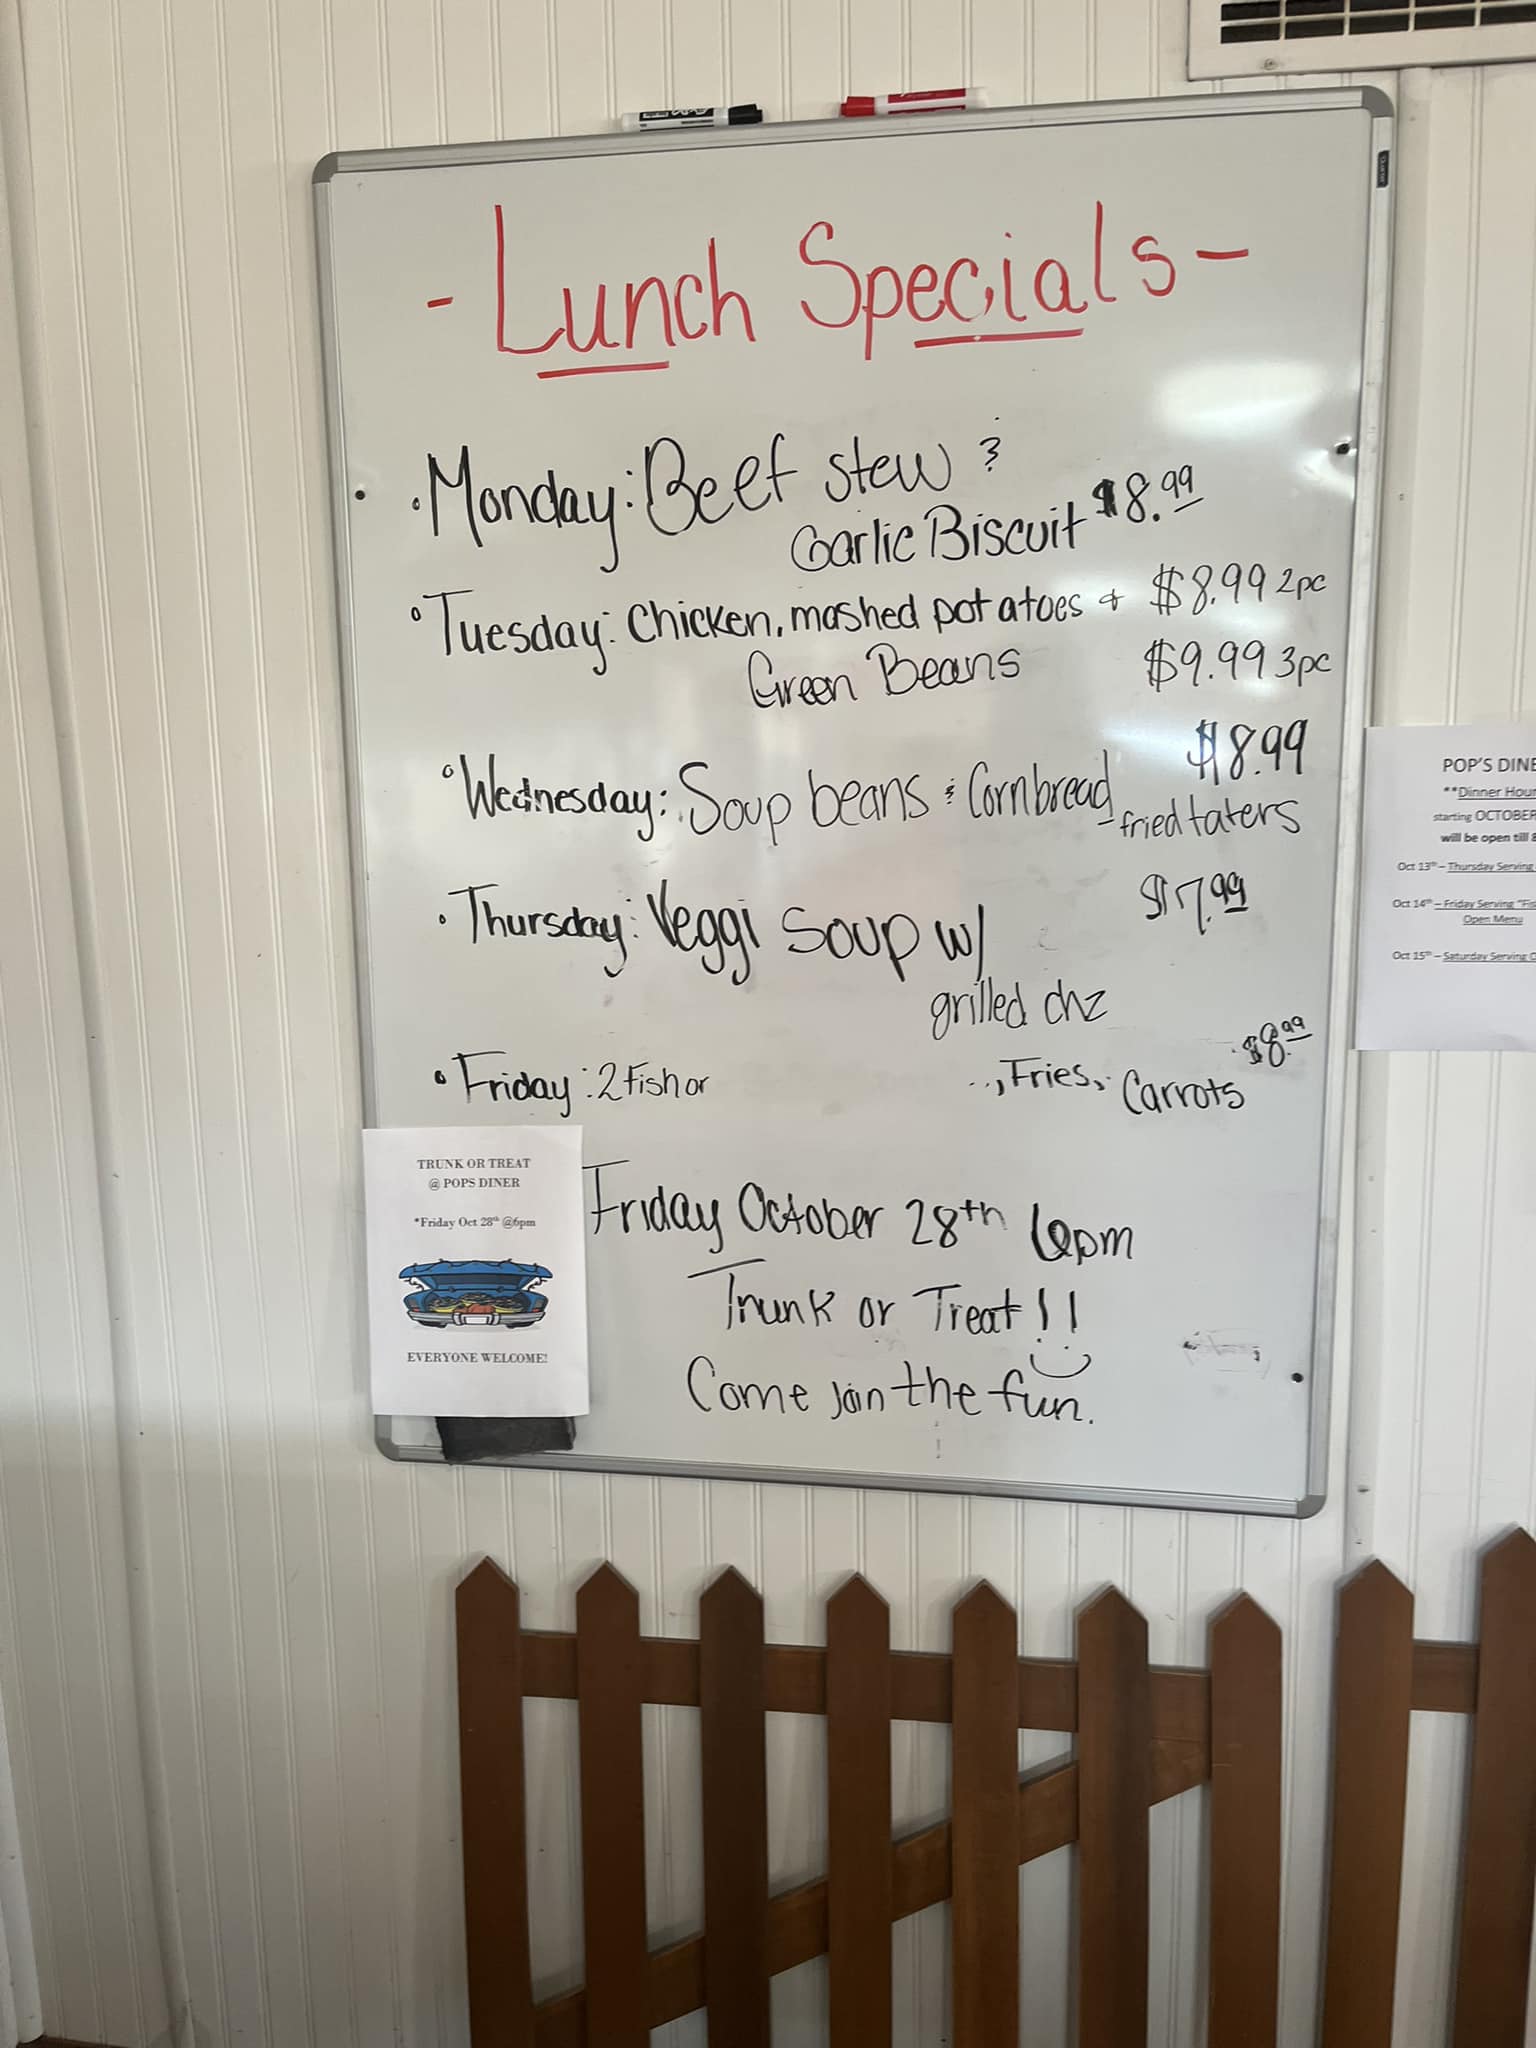 - Lunch Specials -
• Monday: Beef stew &
Garlic Biscuit $8.99
• Tuesday: Chicken, mashed potatoes & $8.99 2pc
Green Beans $9.99 3pc
$8.99
• Wednesday: Soup beans & Cornbread
- fried taters
• Thursday: Veggi Soup w/ $7.99
grilled chz
• Friday: 2 Fish or , Fries, Carrots $8.99
Friday October 28th 6pm
Trunk or Treat!!
Come Join the fun.
TRUNK OR TREAT
@ POPS DINER
*Friday Oct 28th @6pm
EVERYONE WELCOME!
POP'S DINE
**Dinner Hour
starting OCTOBER
will be open till
Oct 13th – Thursday Serving
Oct 14th – Friday Serving "Fis
Open Menu
Oct 15th – Saturday Serving